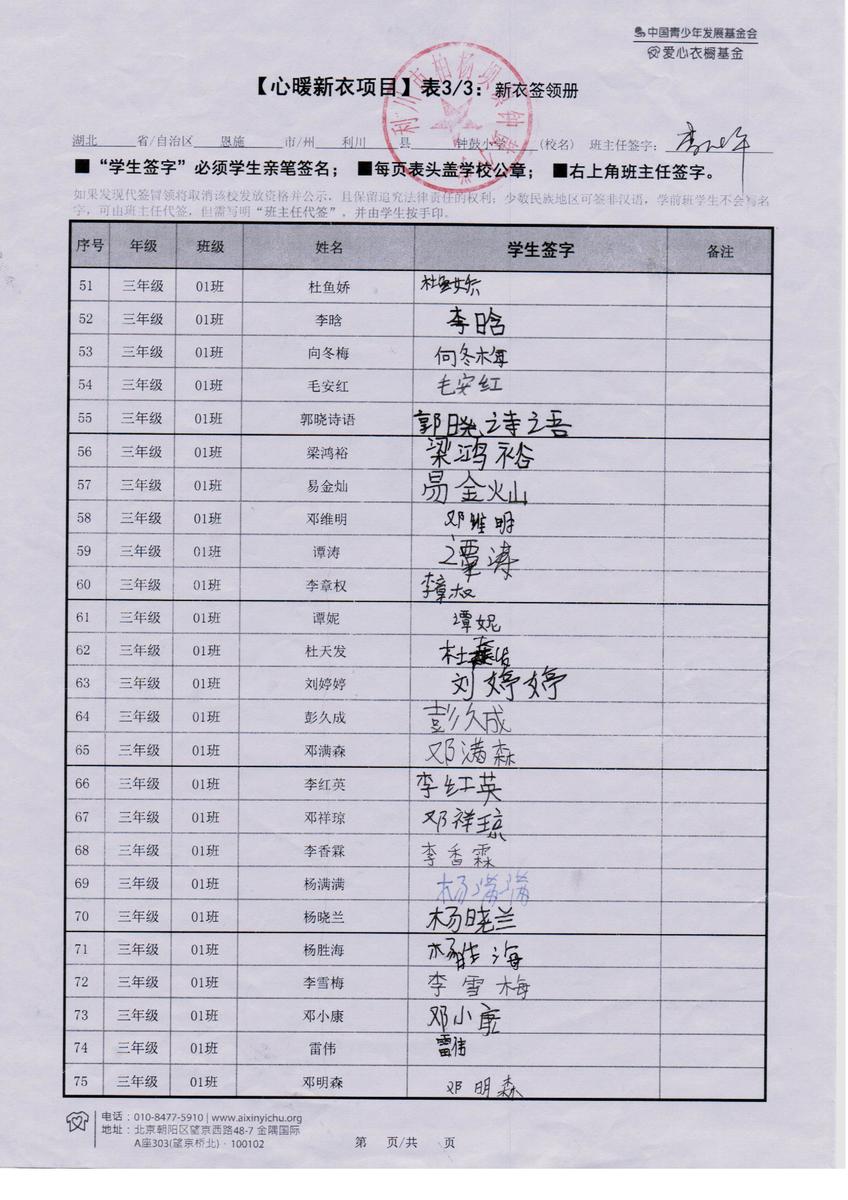 中国青少年发展基金会
爱心衣橱基金
【心暖新衣项目】表3/3：新衣签领册
湖北 省/自治区 恩施 市/州 利川 县 钟鼓小学 (校名) 班主任签字：
■“学生签字”必须学生亲笔签名；■每页表头盖学校公章；■右上角班主任签字。
如果发现代签冒领将取消该校发放资格并公示，且保留追究法律责任的权利；少数民族地区可签非汉语，学前班学生不会写名
字，可由班主任代签，但需写明“班主任代签”，并由学生按手印。
序号 年级 班级 姓名 学生签字 备注
51 三年级 01班 杜鱼娇 杜鱼娇
52 三年级 01班 李晗 李晗
53 三年级 01班 向冬梅 向冬梅
54 三年级 01班 毛安红 毛安红
55 三年级 01班 郭晓诗语 郭晓诗语
56 三年级 01班 梁鸿裕 梁鸿裕
57 三年级 01班 易金灿 易金灿
58 三年级 01班 邓维明 邓维明
59 三年级 01班 谭涛 谭涛
60 三年级 01班 李章权 李章权
61 三年级 01班 谭妮 谭妮
62 三年级 01班 杜天发 杜
63 三年级 01班 刘婷婷 刘婷婷
64 三年级 01班 彭久成 彭久成
65 三年级 01班 邓满森 邓满森
66 三年级 01班 李红英 李红英
67 三年级 01班 邓祥琼 邓祥琼
68 三年级 01班 李香霖 李香霖
69 三年级 01班 杨满满 杨满满
70 三年级 01班 杨晓兰 杨晓兰
71 三年级 01班 杨胜海 杨胜海
72 三年级 01班 李雪梅 李雪梅
73 三年级 01班 邓小康 邓小康
74 三年级 01班 雷伟 雷伟
75 三年级 01班 邓明森 邓明森
电话：010-8477-5910 | www.aixinyichu.org
地址：北京朝阳区望京西路48-7 金隅国际
A座303(望京桥北) · 100102
第 页/共 页